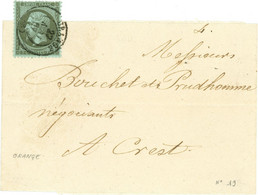 Messieurs
Bouchet et Prudhomme
négociants
A Crest
ORANGE
N° 19